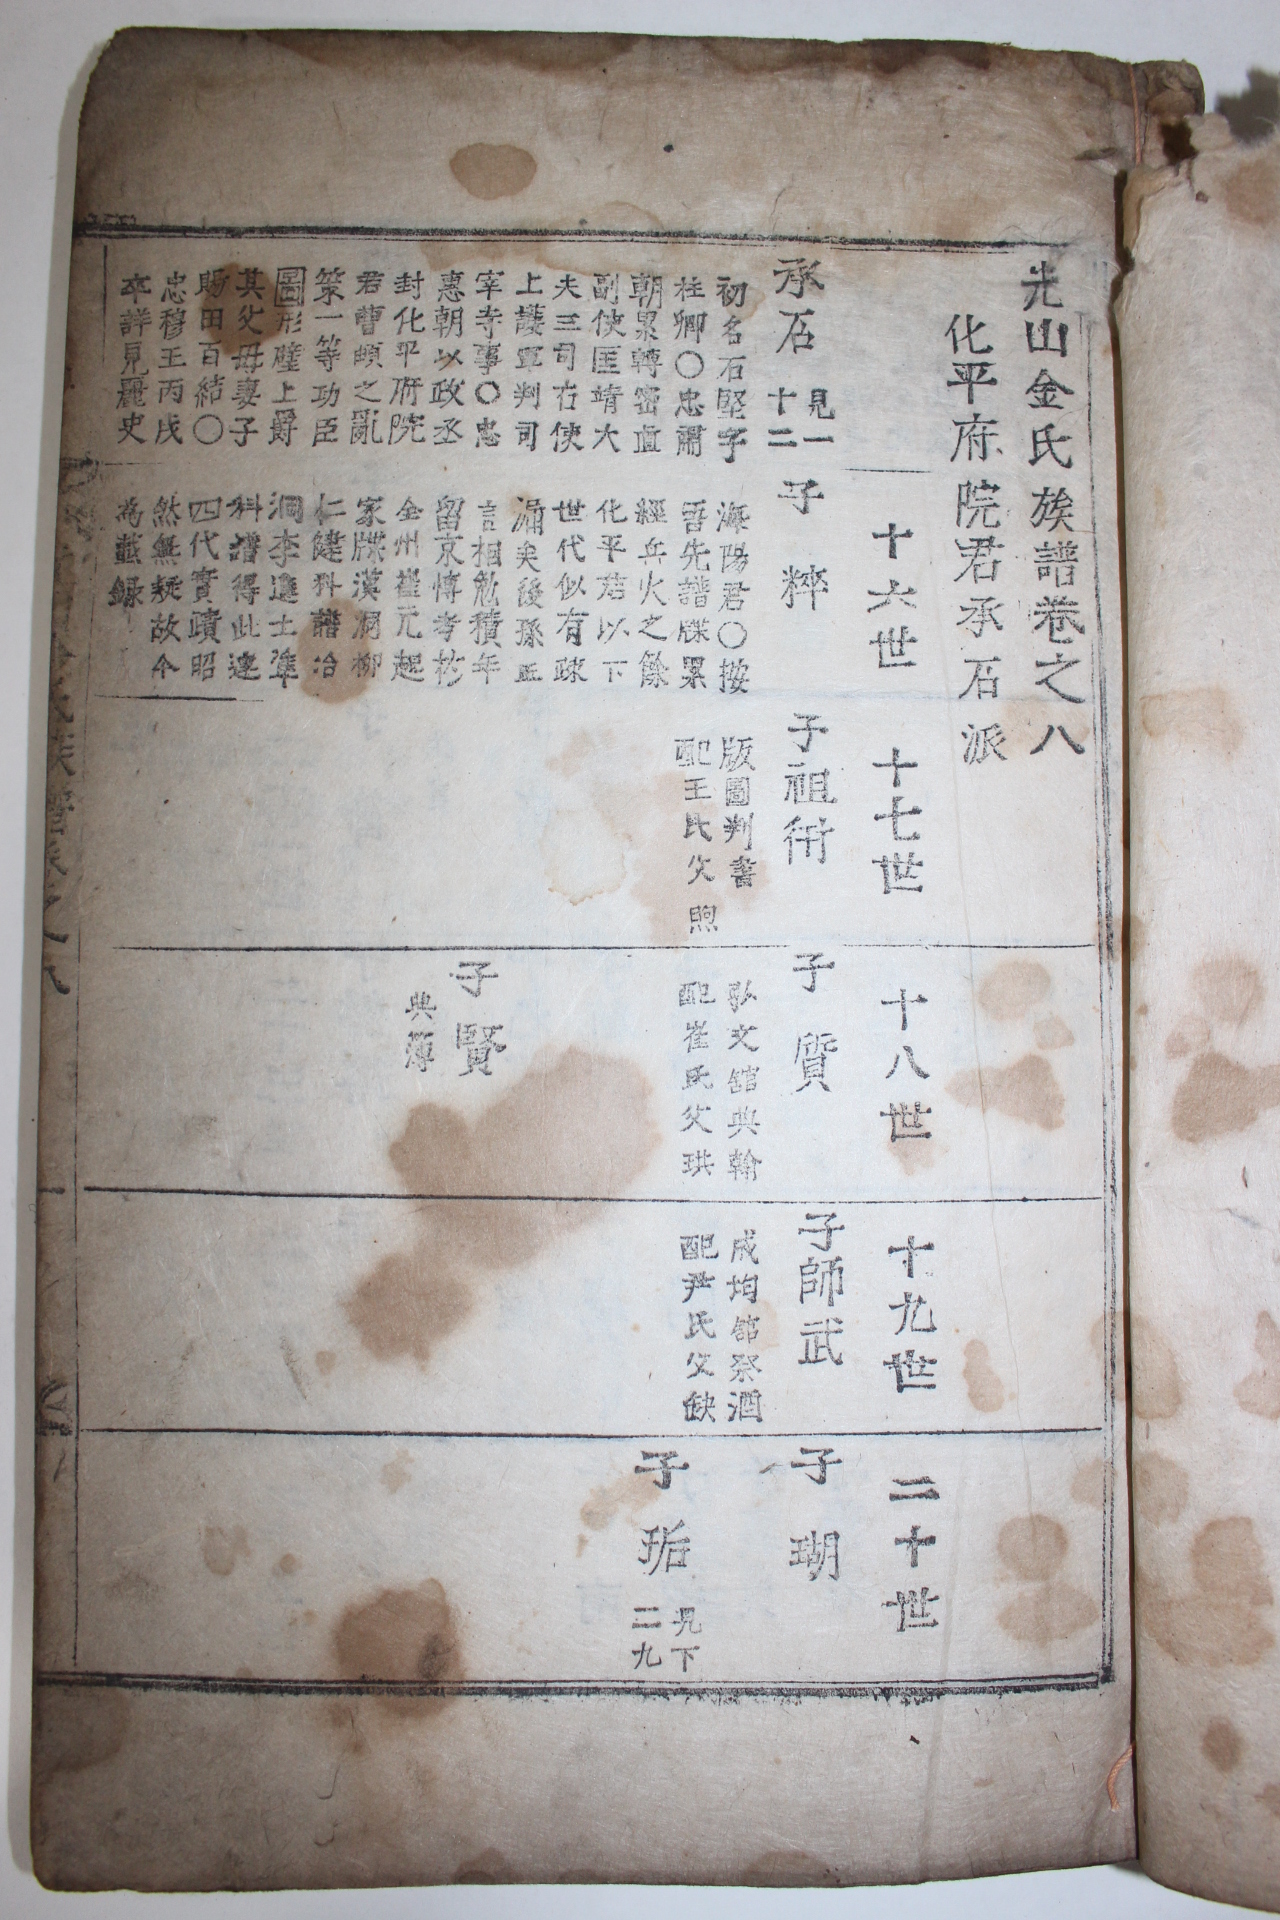 光山金氏族譜卷之八
化平府院君承石派
承石
見一
十二
初名石堅字
柱卿〇忠肅
朝累轉密直
副使匡靖大
夫三司右使
上護軍判司
宰寺事〇忠
惠朝以政丞
封化平府院
君曹頔之亂
策一等功臣
圖形壁上爵
其父母妻子
賜田百結〇
忠穆王丙戌
卒詳見麗史
十六世
子 粹
海陽君〇按
吾先譜牒累
經兵火之餘
化平君以下
世代似有疎
漏矣後孫
言相勉積年
留京博考於
全州崔元起
家牒漢洞柳
仁健科譜冶
洞李進士準
科譜得此逺
四代實蹟昭
然無疑故今
為載錄
十七世
子祖衎
版圖判書
配王氏父煦
十八世
子 質
弘文舘典翰
配崔氏父珙
子 賢
典簿
十九世
子師武
成均舘祭酒
配尹氏父缺
二十世
子 瑚
子 珤
見下
二九